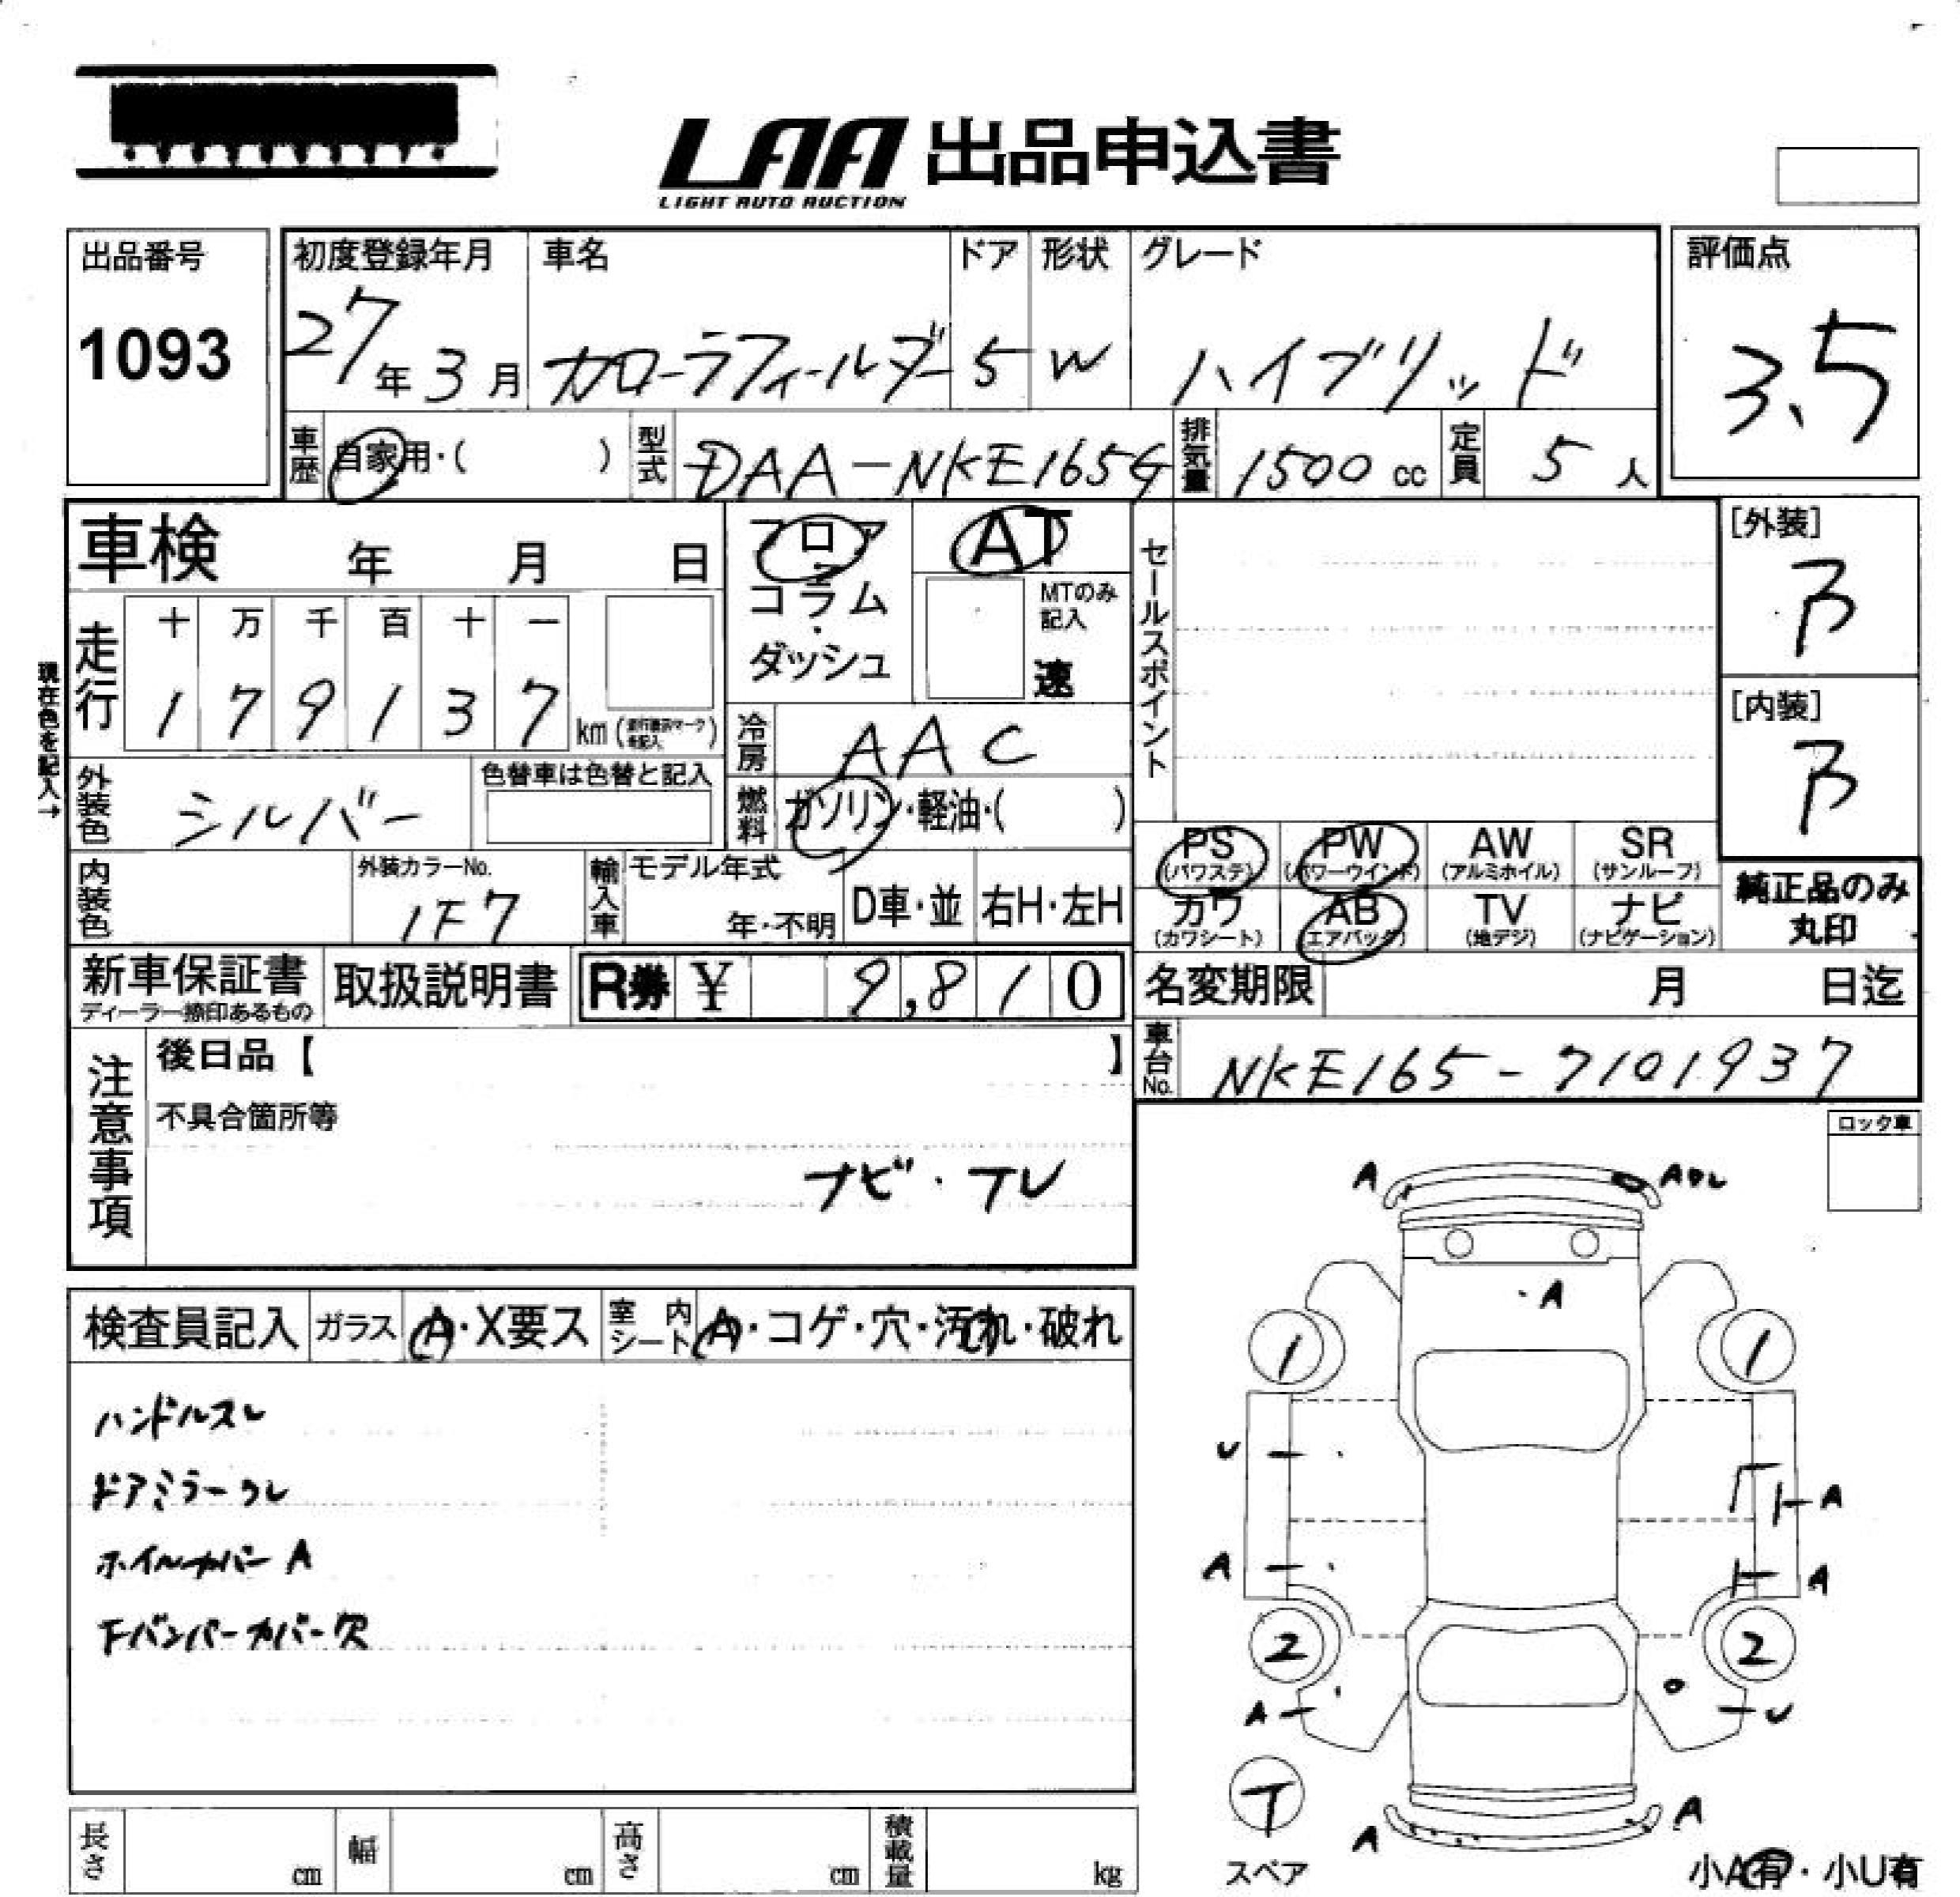 LAA 出品申込書
LIGHT AUTO AUCTION
出品番号
1093
初度登録年月
27年3月
車名
カローラフィールダー
ドア
5
形状
W
グレード
ハイブリッド
評価点
3.5
車歴 自家用・( )
型式 DAA-NKE165G
排気量 1500 cc
定員 5 人
車検 年 月 日
フロア・コラム・ダッシュ
AT
MTのみ記入
速
セールスポイント
[外装]
B
[内装]
B
現在色を記入→
走行
十 万 千 百 十 一
1 7 9 1 3 7 km
冷房 AAC
外装色 シルバー
色替車は色替と記入
燃料 ガソリン・軽油・( )
PS (パワステ)
PW (パワーウインド)
AW (アルミホイル)
SR (サンルーフ)
カワ (カワシート)
AB (エアバック)
TV (地デジ)
ナビ (ナビゲーション)
純正品のみ丸印
内装色
外装カラーNo.
1F7
輸入車
モデル年式
年・不明
D車・並
右H・左H
新車保証書
ディーラー捺印あるもの
取扱説明書
R券 ¥ 9,810
名変期限 月 日迄
車台No. NKE165-7101937
注意事項
後日品【 】
不具合箇所等
ナビ・テレ
ロック車
検査員記入
ガラス A・X要ス
室内シート A・コゲ・穴・汚れ・破れ
ハンドルスレ
ドアミラースレ
ホイルカバー A
下バンパーカバー欠
A
A
A
1
1
U
A
A
A
2
2
A
U
T
スペア
A
A
小A有・小U有
長さ cm
幅 cm
高さ cm
積載量 kg